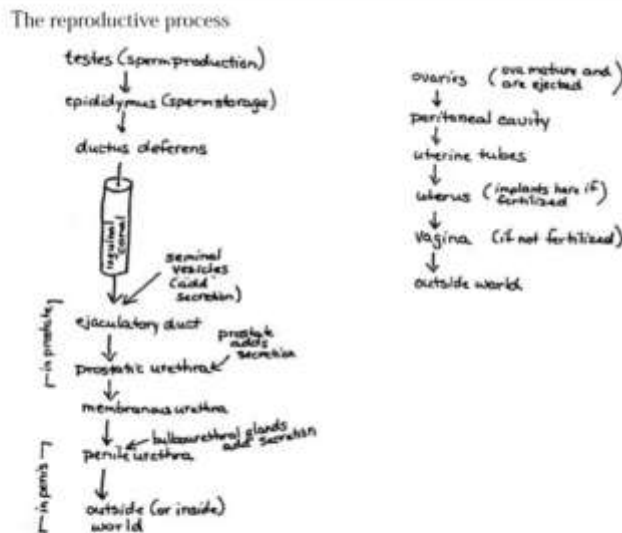 The reproductive process
testes (sperm production)
epididymus (sperm storage)
ductus deferens
inguinal
canal
seminal
vesicles
(add
secretion)
in prostate
ejaculatory duct
prostatic urethra
prostate
adds
secretion
membranous urethra
bulbourethral glands
add secretion
in penis
penile urethra
outside (or inside)
world
ovaries (ova mature and
are ejected
peritoneal cavity
uterine tubes
uterus (implants here if
fertilized)
vagina (if not fertilized)
outside world